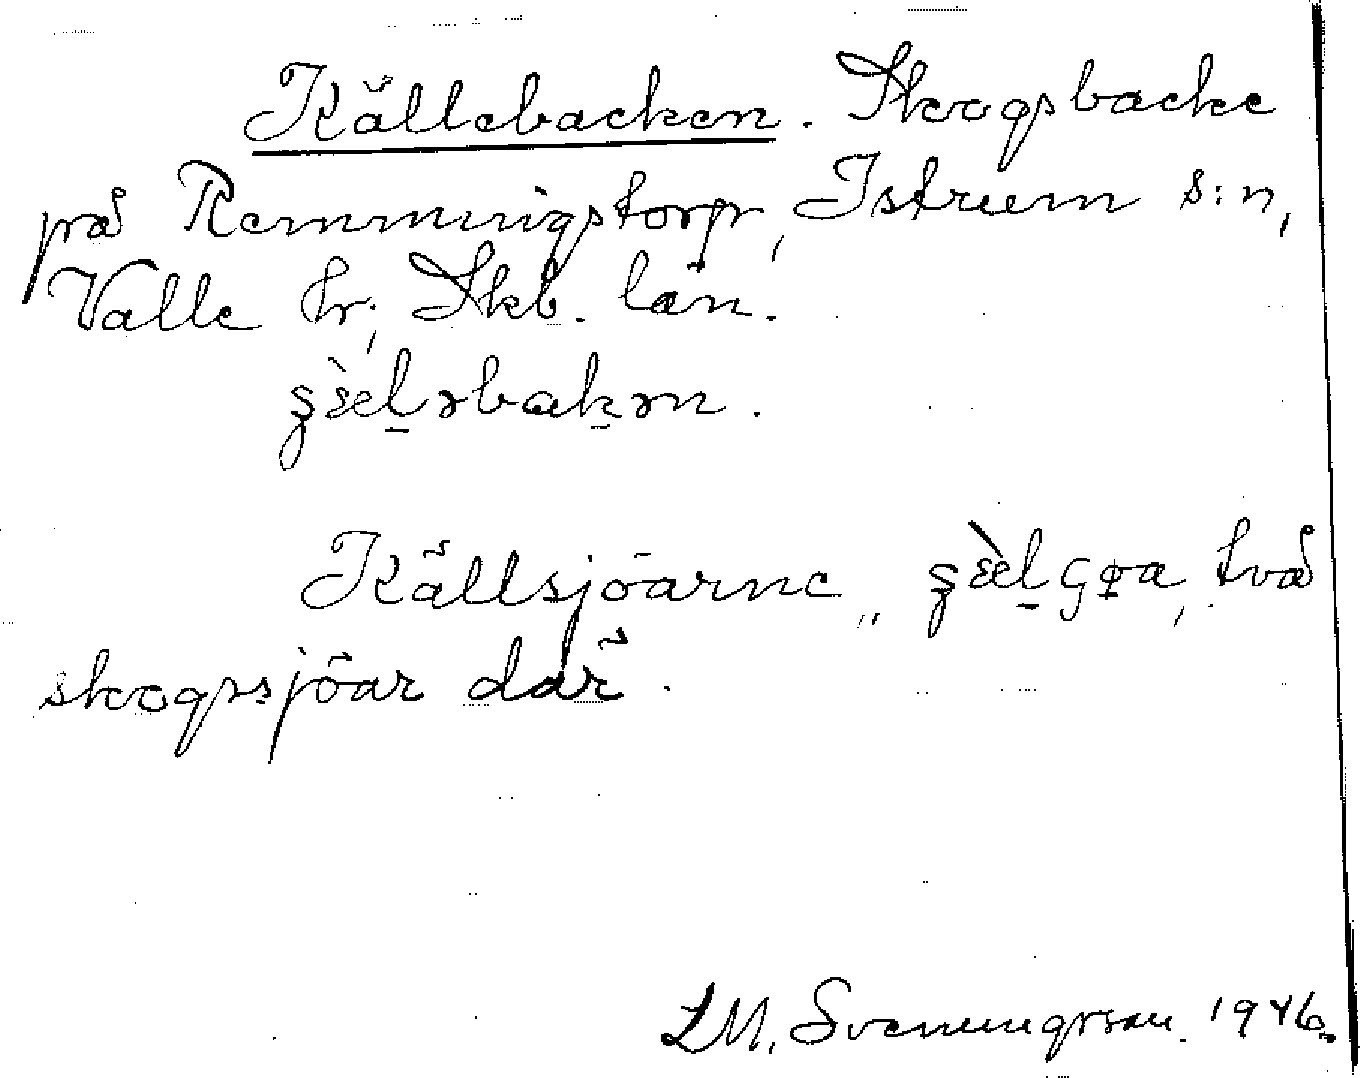 Källebacken. Skogsbacke
på Remmingstorp, Istrum s:n,
Valle hr, Skb. län.
Källsjöarne, två
skogssjöar där.
LM. Svenungsson. 1946.